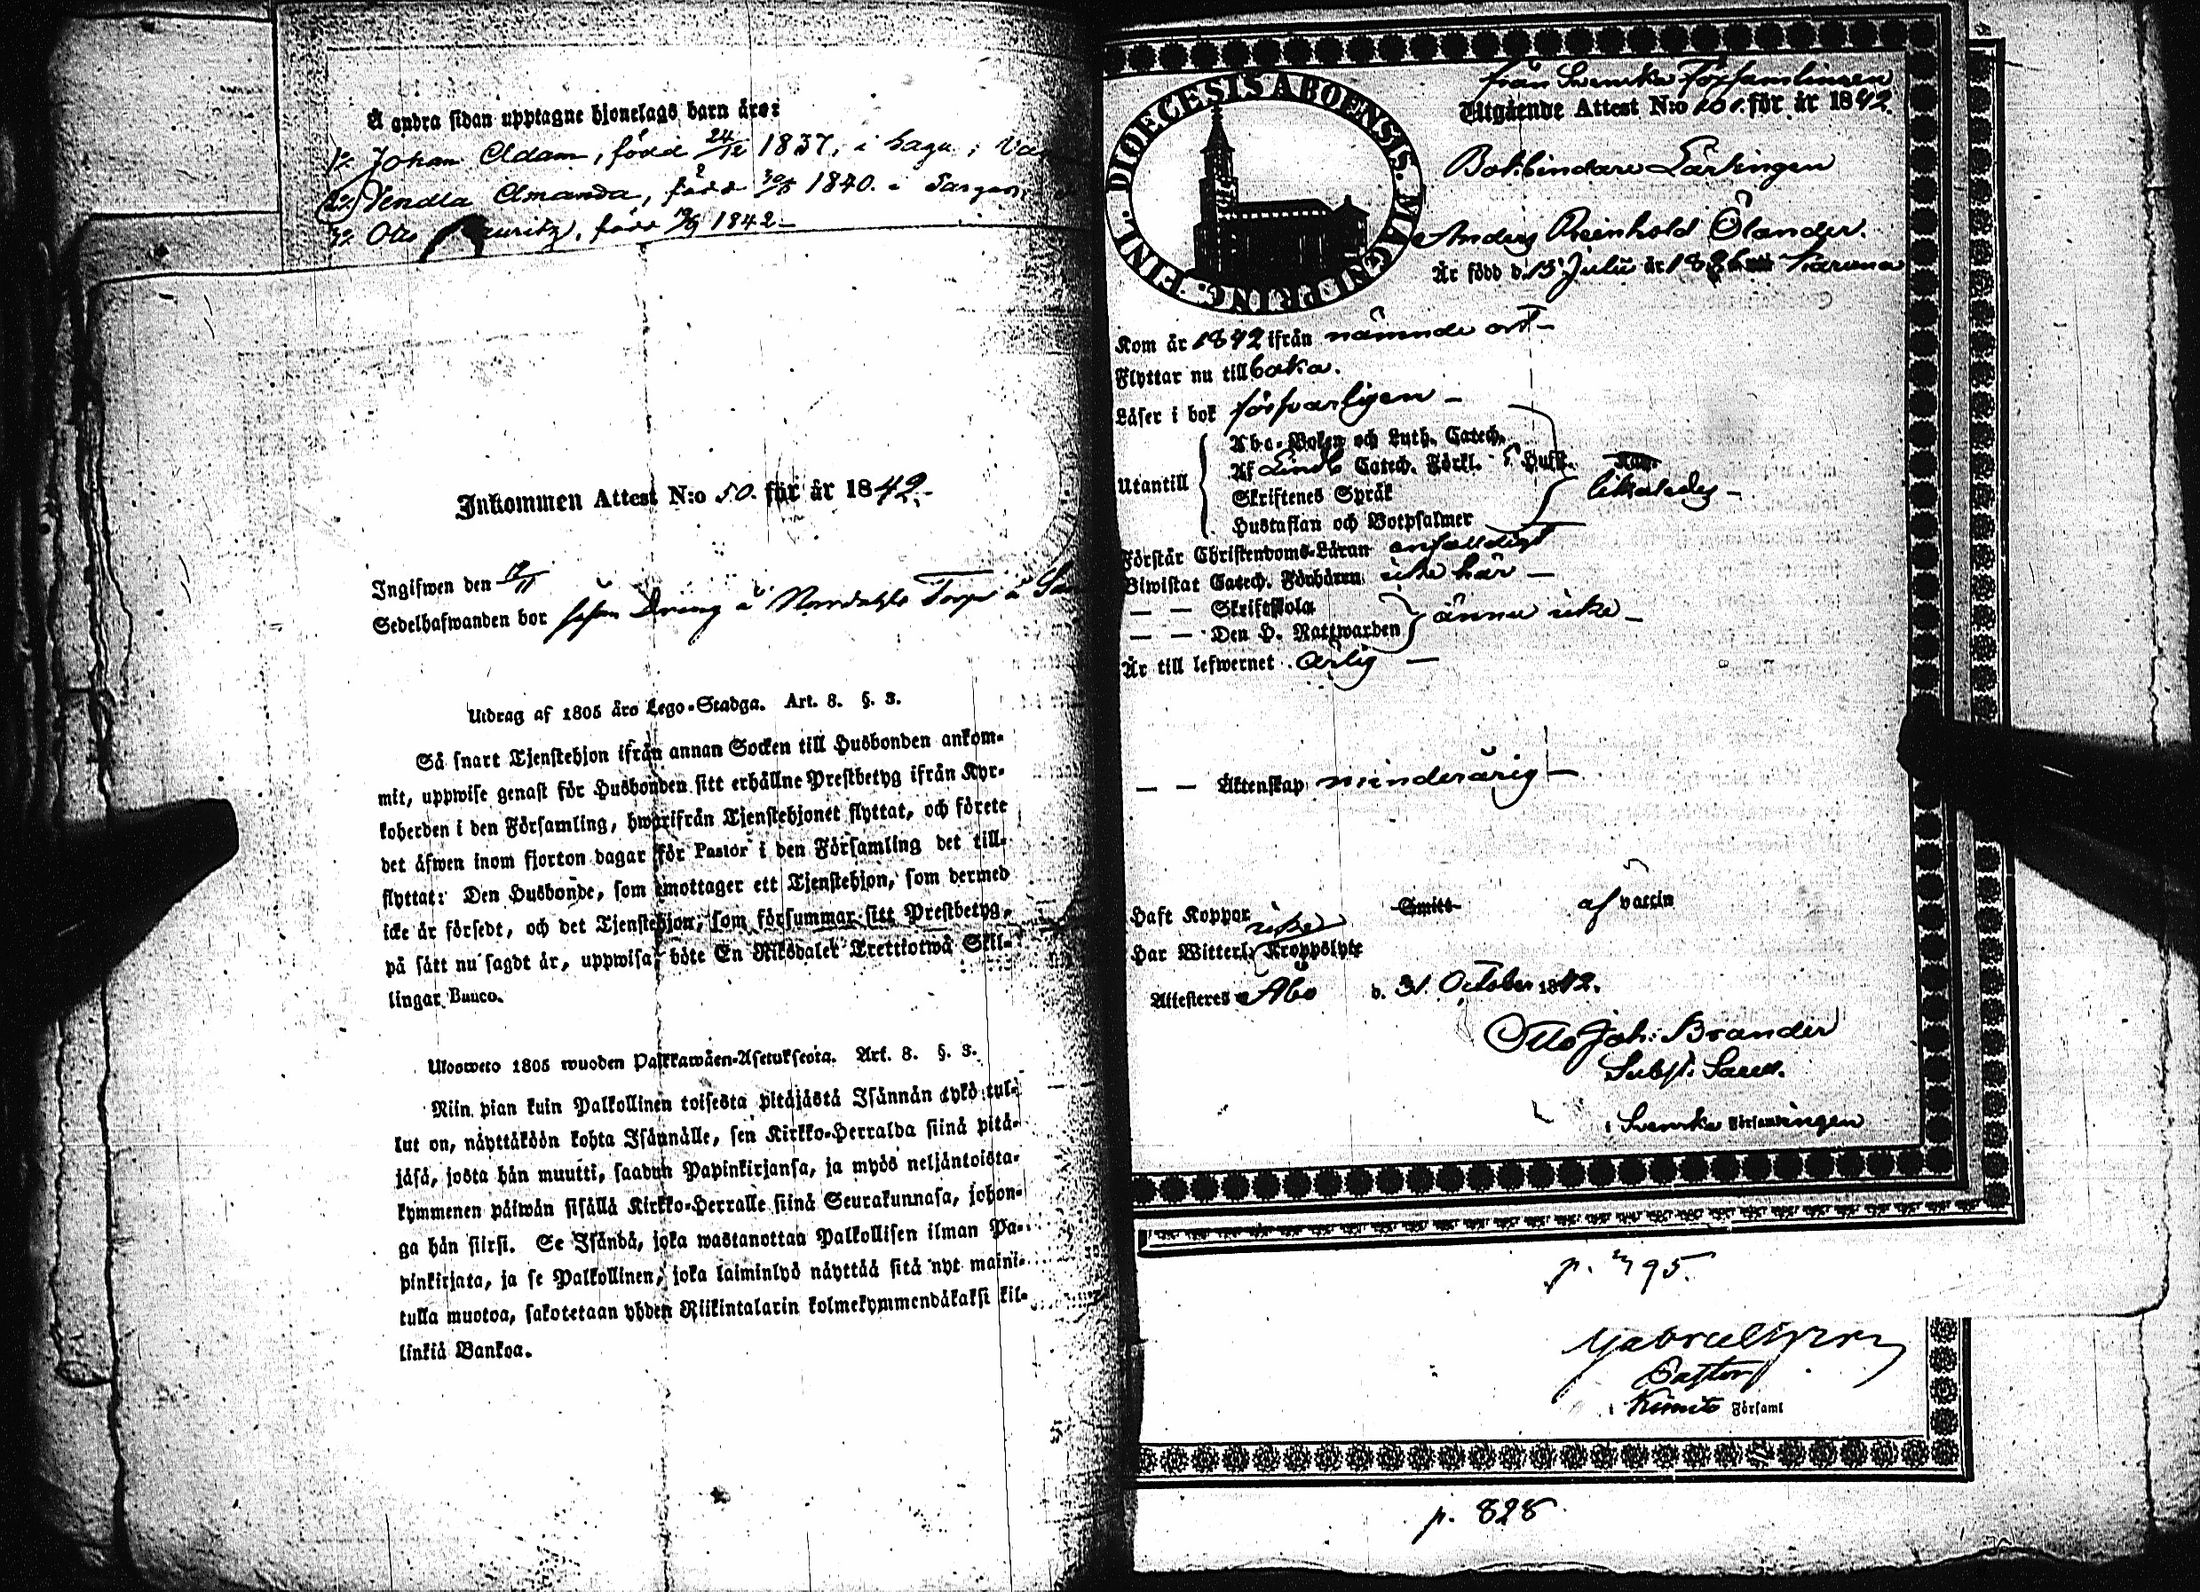 Å andra sidan upptagne hjonelags barn äro:
1:o Johan Adam, född 24/12 1837, i Sagu
2:o Vendla Amanda, född 30/5 1840. i Sargu
3:o Otto Mauritz, född 19/9 1842.–
Inkommen Attest N:o 50. för år 1842.–
Ingifwen den 17/11
Sedelhafwanden bor såsom Dräng å Torp
Utdrag af 1805 års Lego-Stadga. Art. 8. §. 3.
Så snart Tjenstehjon ifrån annan Socken till Husbonden ankom-
mit, uppwise genast för Husbonden sitt erhållne Prestbetyg ifrån Kyr-
koherden i den Församling, hwarifrån Tjenstehjonet flyttat, och förete
det äfwen inom fjorton dagar för Pastor i den Församling det till-
flyttat: Den Husbonde, som emottager ett Tjenstehjon, som dermed
icke är försedt, och det Tjenstehjon, som försummar sitt Prestbetyg,
på sätt nu sagdt är, uppwisa, böte En Riksdaler Trettiotwå Skil-
lingar Banco.
Ulosweto 1805 wuoden Palkkawäen-Asetuksesta. Art. 8. §. 3.
Niin pian kuin Palkollinen toisesta pitäjästä Isännän tykö tul-
lut on, näyttäköön kohta Isännälle, sen Kirkko-Herralda siinä pitä-
jäsä, josta hän muutti, saadun Papinkirjansa, ja myös neljäntoista-
kymmenen päiwän sisällä Kirkko-Herralle siinä Seurakunnasa, johon-
ga hän siirsi. Se Isändä, joka wastanottaa Palkollisen ilman Pa-
pinkirjata, ja se Palkollinen, joka laiminlyö näyttää sitä nyt maini-
tulla muotoa, sakotetaan yhden Riikintalarin kolmekymmendäkaksi kil-
linkiä Bankoa.
DIOECESIS ABOENSIS. MAGN. PRING. FINL.
från Svenska Församlingen
Utgående Attest N:o 101. för år 1842.
Bokbindare Lärlingen
Anders Reinhold Ölander.
Är född d. 15 Julii år 1826 Karuna
Kom år 1842 ifrån nämnde ort –
Flyttar nu tillbaka.
Läser i bok försvarligen –
Utantill
Abc-Boken och Luth. Catech.
Af Lindb Catech. Förkl. 5 Hufst.
Skriftenes Språk
Hustaflan och Botpsalmer
likaledes –
Förstår Christendoms-Läran enfaldigt
Biwistat Catech. Förhören icke här –
— — Skriftskola
— — Den H. Nattwarden
ännu icke –
Är till lefwernet ärlig –
— — Äktenskap minderårig –
Haft Koppor Smitt af vaccin
Har Witterl. Kroppslyte icke
Attesteres Åbo d. 31 October 1842.
Otto Joh: Brander
Subst. Sacell.
i Svenska Församlingen
p. 795.
Pastor
i Kimito Församl
p. 828